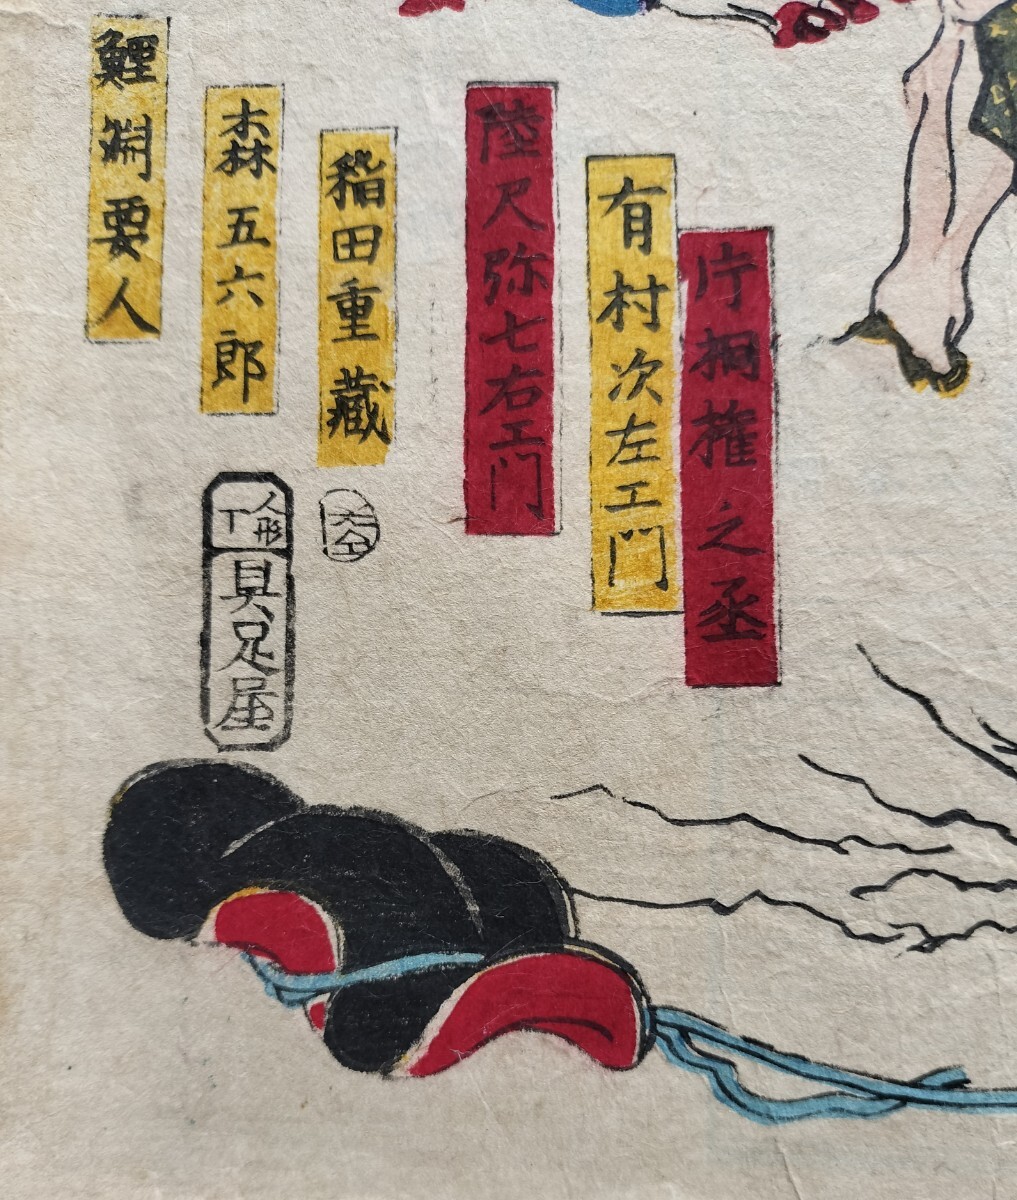 片桐権之丞
有村次左エ門
陸尺弥七右エ門
稲田重藏
森五六郎
鯉淵要人
人形丁
具足屋